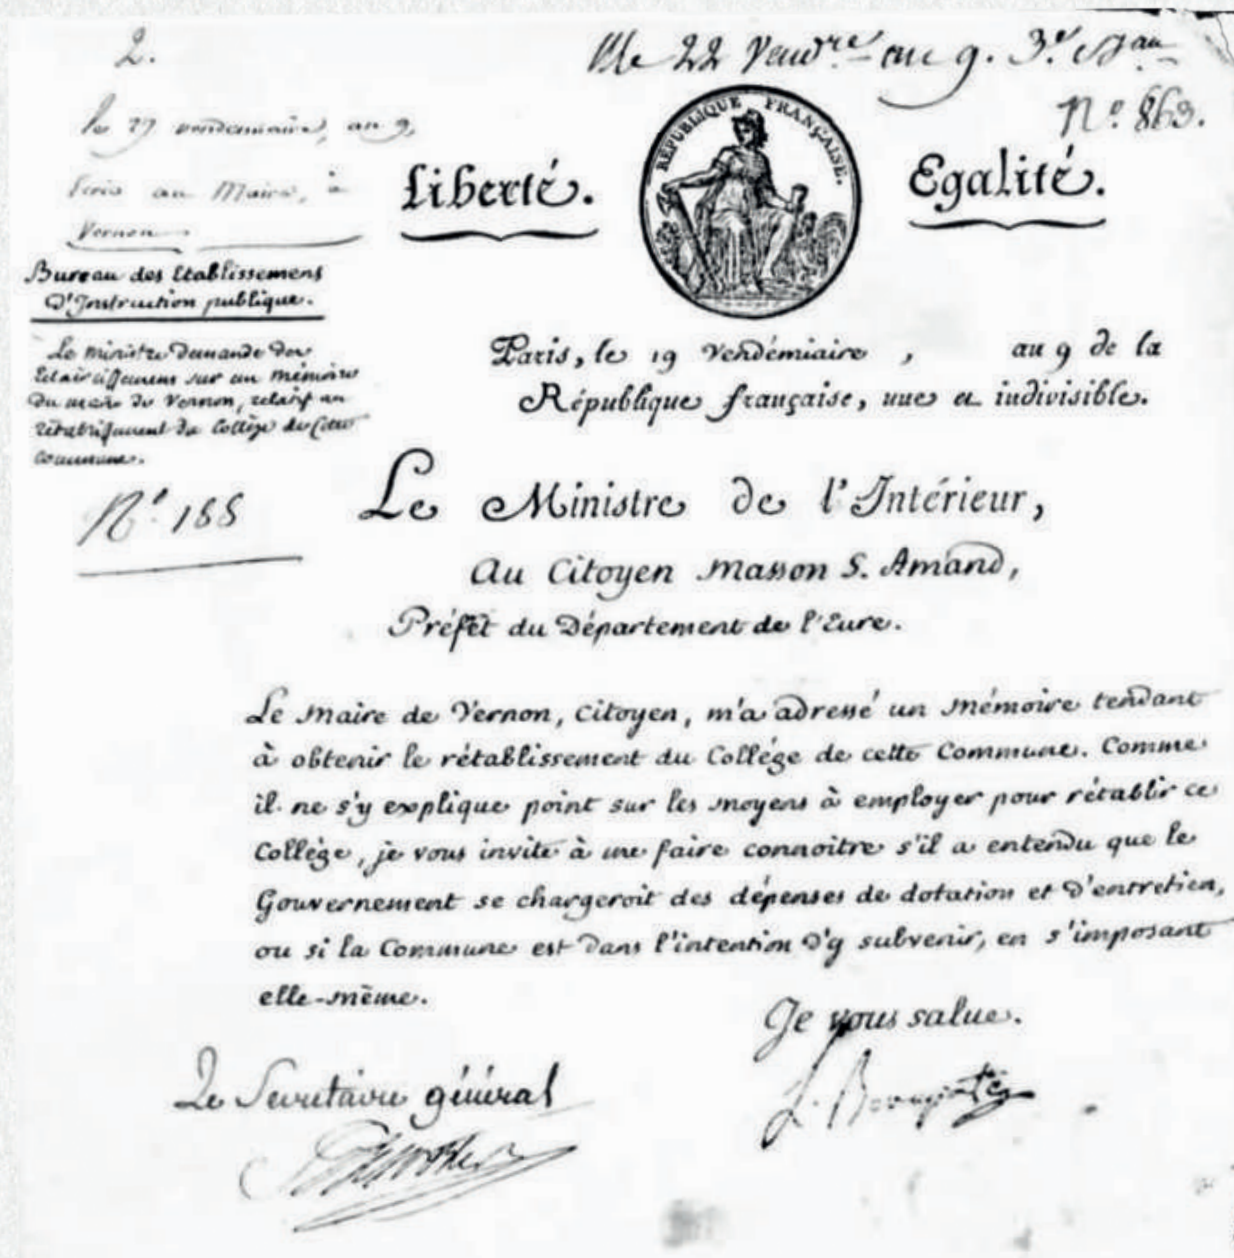 2.
le 22 Vend.re an 9. 3.e Bau
N.o 863.
le 27 vendemiaire, an 9,
Ecris au Maire, à
Vernon
Liberté.
REPUBLIQUE FRANÇAISE.
Egalité.
Bureau des Etablissemens
D'Instruction publique.
Le ministre demande des
Eclaircissemens sur un mémoire
du maire de Vernon, relatif au
rétablissement du Collège de Cette
Commune.
N.o 188
Paris, le 19 Vendémiaire, an 9 de la
République française, une et indivisible.
Le Ministre de l'Intérieur,
Au Citoyen Masson S. Amand,
Préfet du Département de l'Eure.
Le Maire de Vernon, Citoyen, m'a adressé un Mémoire tendant
à obtenir le rétablissement du Collége de cette Commune. Comme
il ne s'y explique point sur les moyens à employer pour rétablir ce
Collège, je vous invite à me faire connoitre s'il a entendu que le
Gouvernement se chargeroit des dépenses de dotation et d'entretien,
ou si la Commune est dans l'intention d'y subvenir, en s'imposant
elle-même.
Je vous salue.
Le Secretaire général
L. Bonaparte